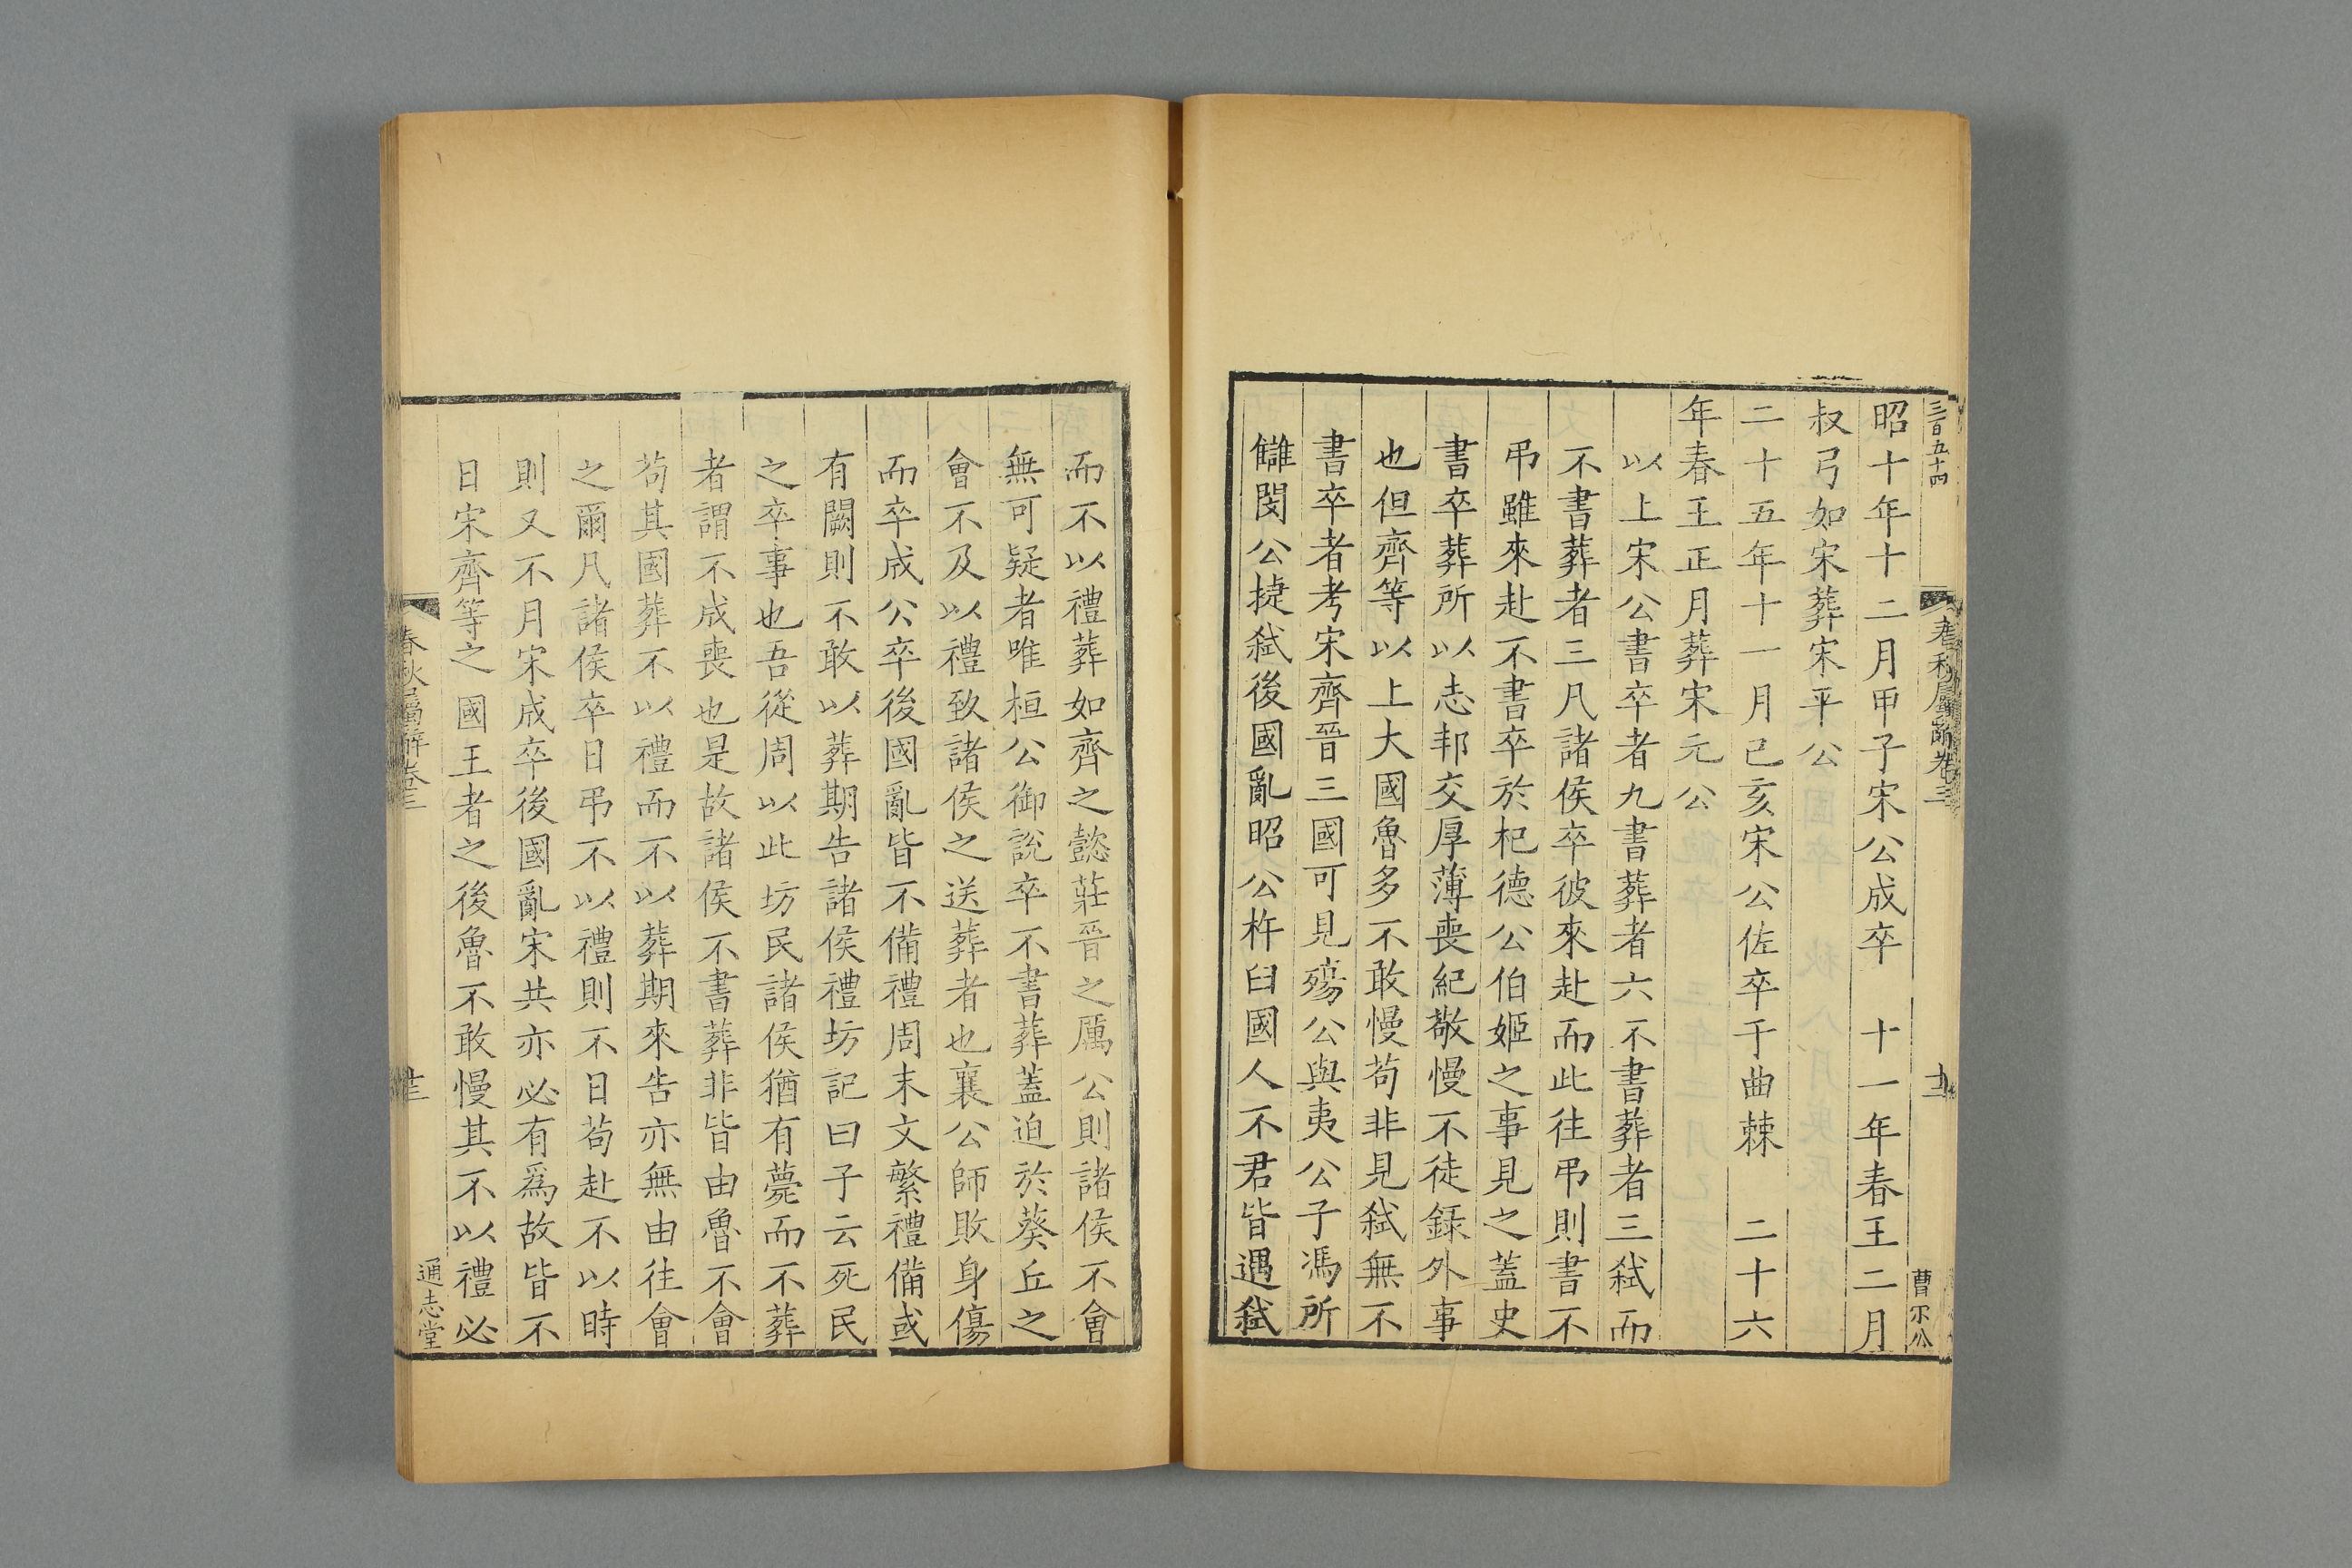 三百五十四
春秋屬辭卷三
曹尔公
昭十年十二月甲子宋公成卒　十一年春王二月
叔弓如宋葬宋平公
二十五年十一月己亥宋公佐卒于曲棘　二十六
年春王正月葬宋元公
以上宋公書卒者九書葬者六不書葬者三弑而
不書葬者三凡諸侯卒彼來赴而此往弔則書不
弔雖來赴不書卒於杞德公伯姬之事見之蓋史
書卒葬所以志邦交厚薄喪紀敬慢不徒録外事
也但齊等以上大國魯多不敢慢苟非見弑無不
書卒者考宋齊晉三國可見殤公與夷公子馮所
讎閔公捷弑後國亂昭公杵臼國人不君皆遇弑
而不以禮葬如齊之懿莊晉之厲公則諸侯不會
無可疑者唯桓公御說卒不書葬蓋迫於葵丘之
會不及以禮致諸侯之送葬者也襄公師敗身傷
而卒成公卒後國亂皆不備禮周末文繁禮備或
有闕則不敢以葬期告諸侯禮坊記曰子云死民
之卒事也吾從周以此坊民諸侯猶有薨而不葬
者謂不成喪也是故諸侯不書葬非皆由魯不會
苟其國葬不以禮而不以葬期來告亦無由往會
之爾凡諸侯卒日弔不以禮則不日苟赴不以時
則又不月宋成卒後國亂宋共亦必有爲故皆不
日宋齊等之國王者之後魯不敢慢其不以禮必
春秋屬辭卷三
通志堂